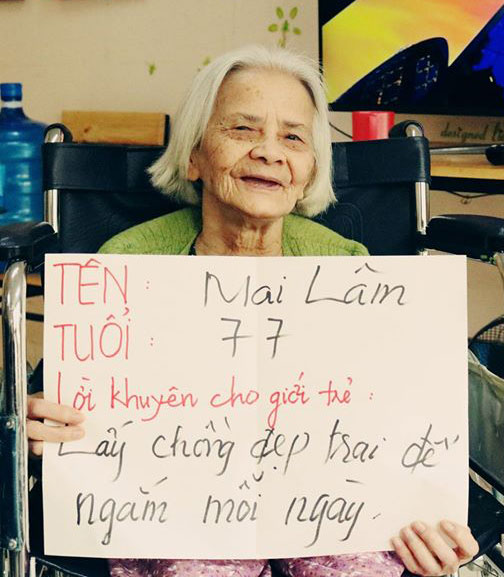 TÊN : Mai Lâm
TUỔI : 77
Lời khuyên cho giới trẻ :
Lấy chồng đẹp trai để
ngắm mỗi ngày.
designed